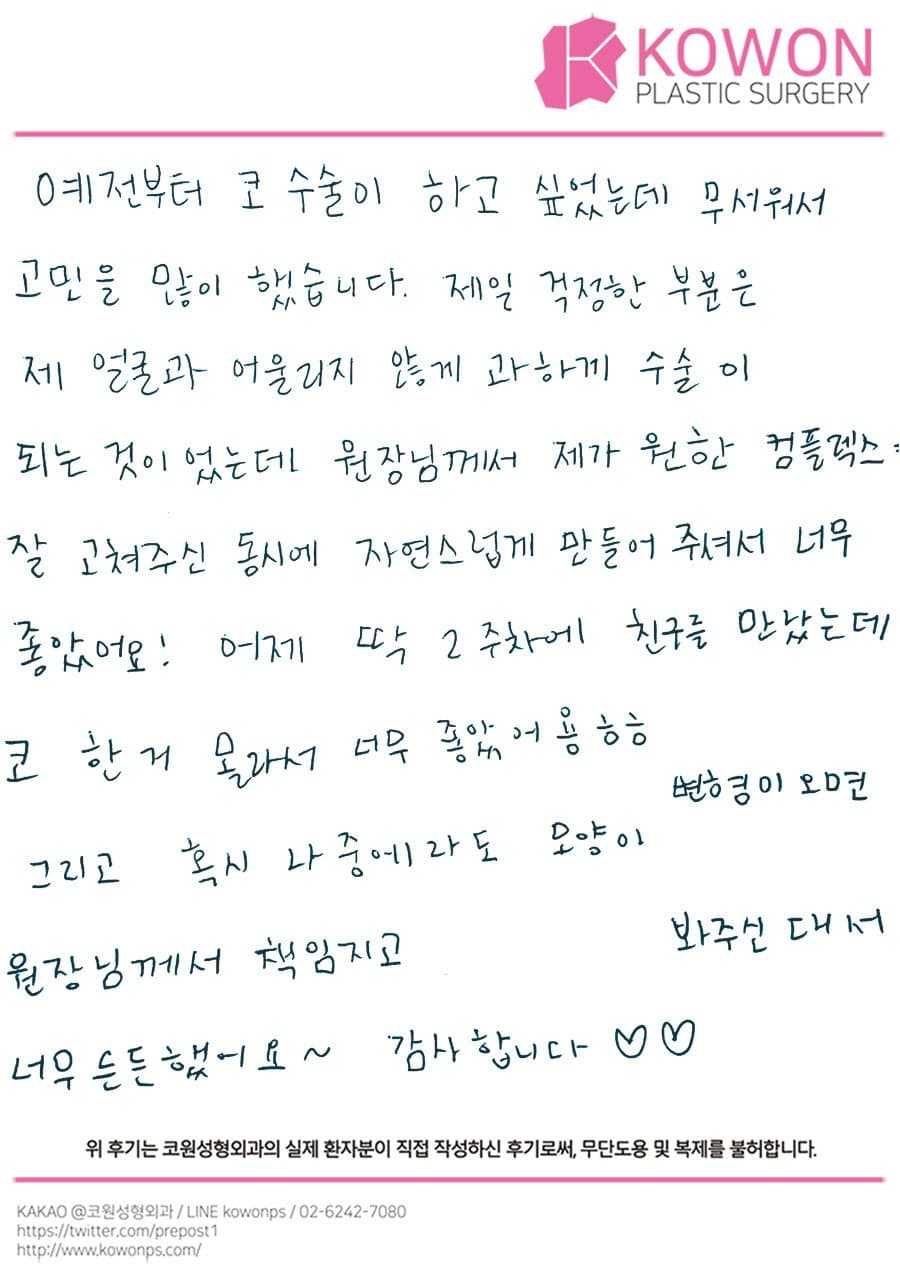 KOWON
PLASTIC SURGERY
예전부터 코 수술이 하고 싶었는데 무서워서
고민을 많이 했습니다. 제일 걱정한 부분은
제 얼굴과 어울리지 않게 과하게 수술 이
되는 것이었는데 원장님께서 제가 원한 컴플렉스
잘 고쳐주신 동시에 자연스럽게 만들어 주셔서 너무
좋았어요! 어제 딱 2주차에 친구를 만났는데
코 한거 몰라서 너무 좋았어용 ㅎㅎ
그리고 혹시 나중에라도 모양이 변형이 오면
원장님께서 책임지고 봐주신대서
너무 든든했어요~ 감사합니다 ♡♡
위 후기는 코원성형외과의 실제 환자분이 직접 작성하신 후기로써, 무단도용 및 복제를 불허합니다.
KAKAO @코원성형외과 / LINE kowonps / 02-6242-7080
https://twitter.com/prepost1
http://www.kowonps.com/